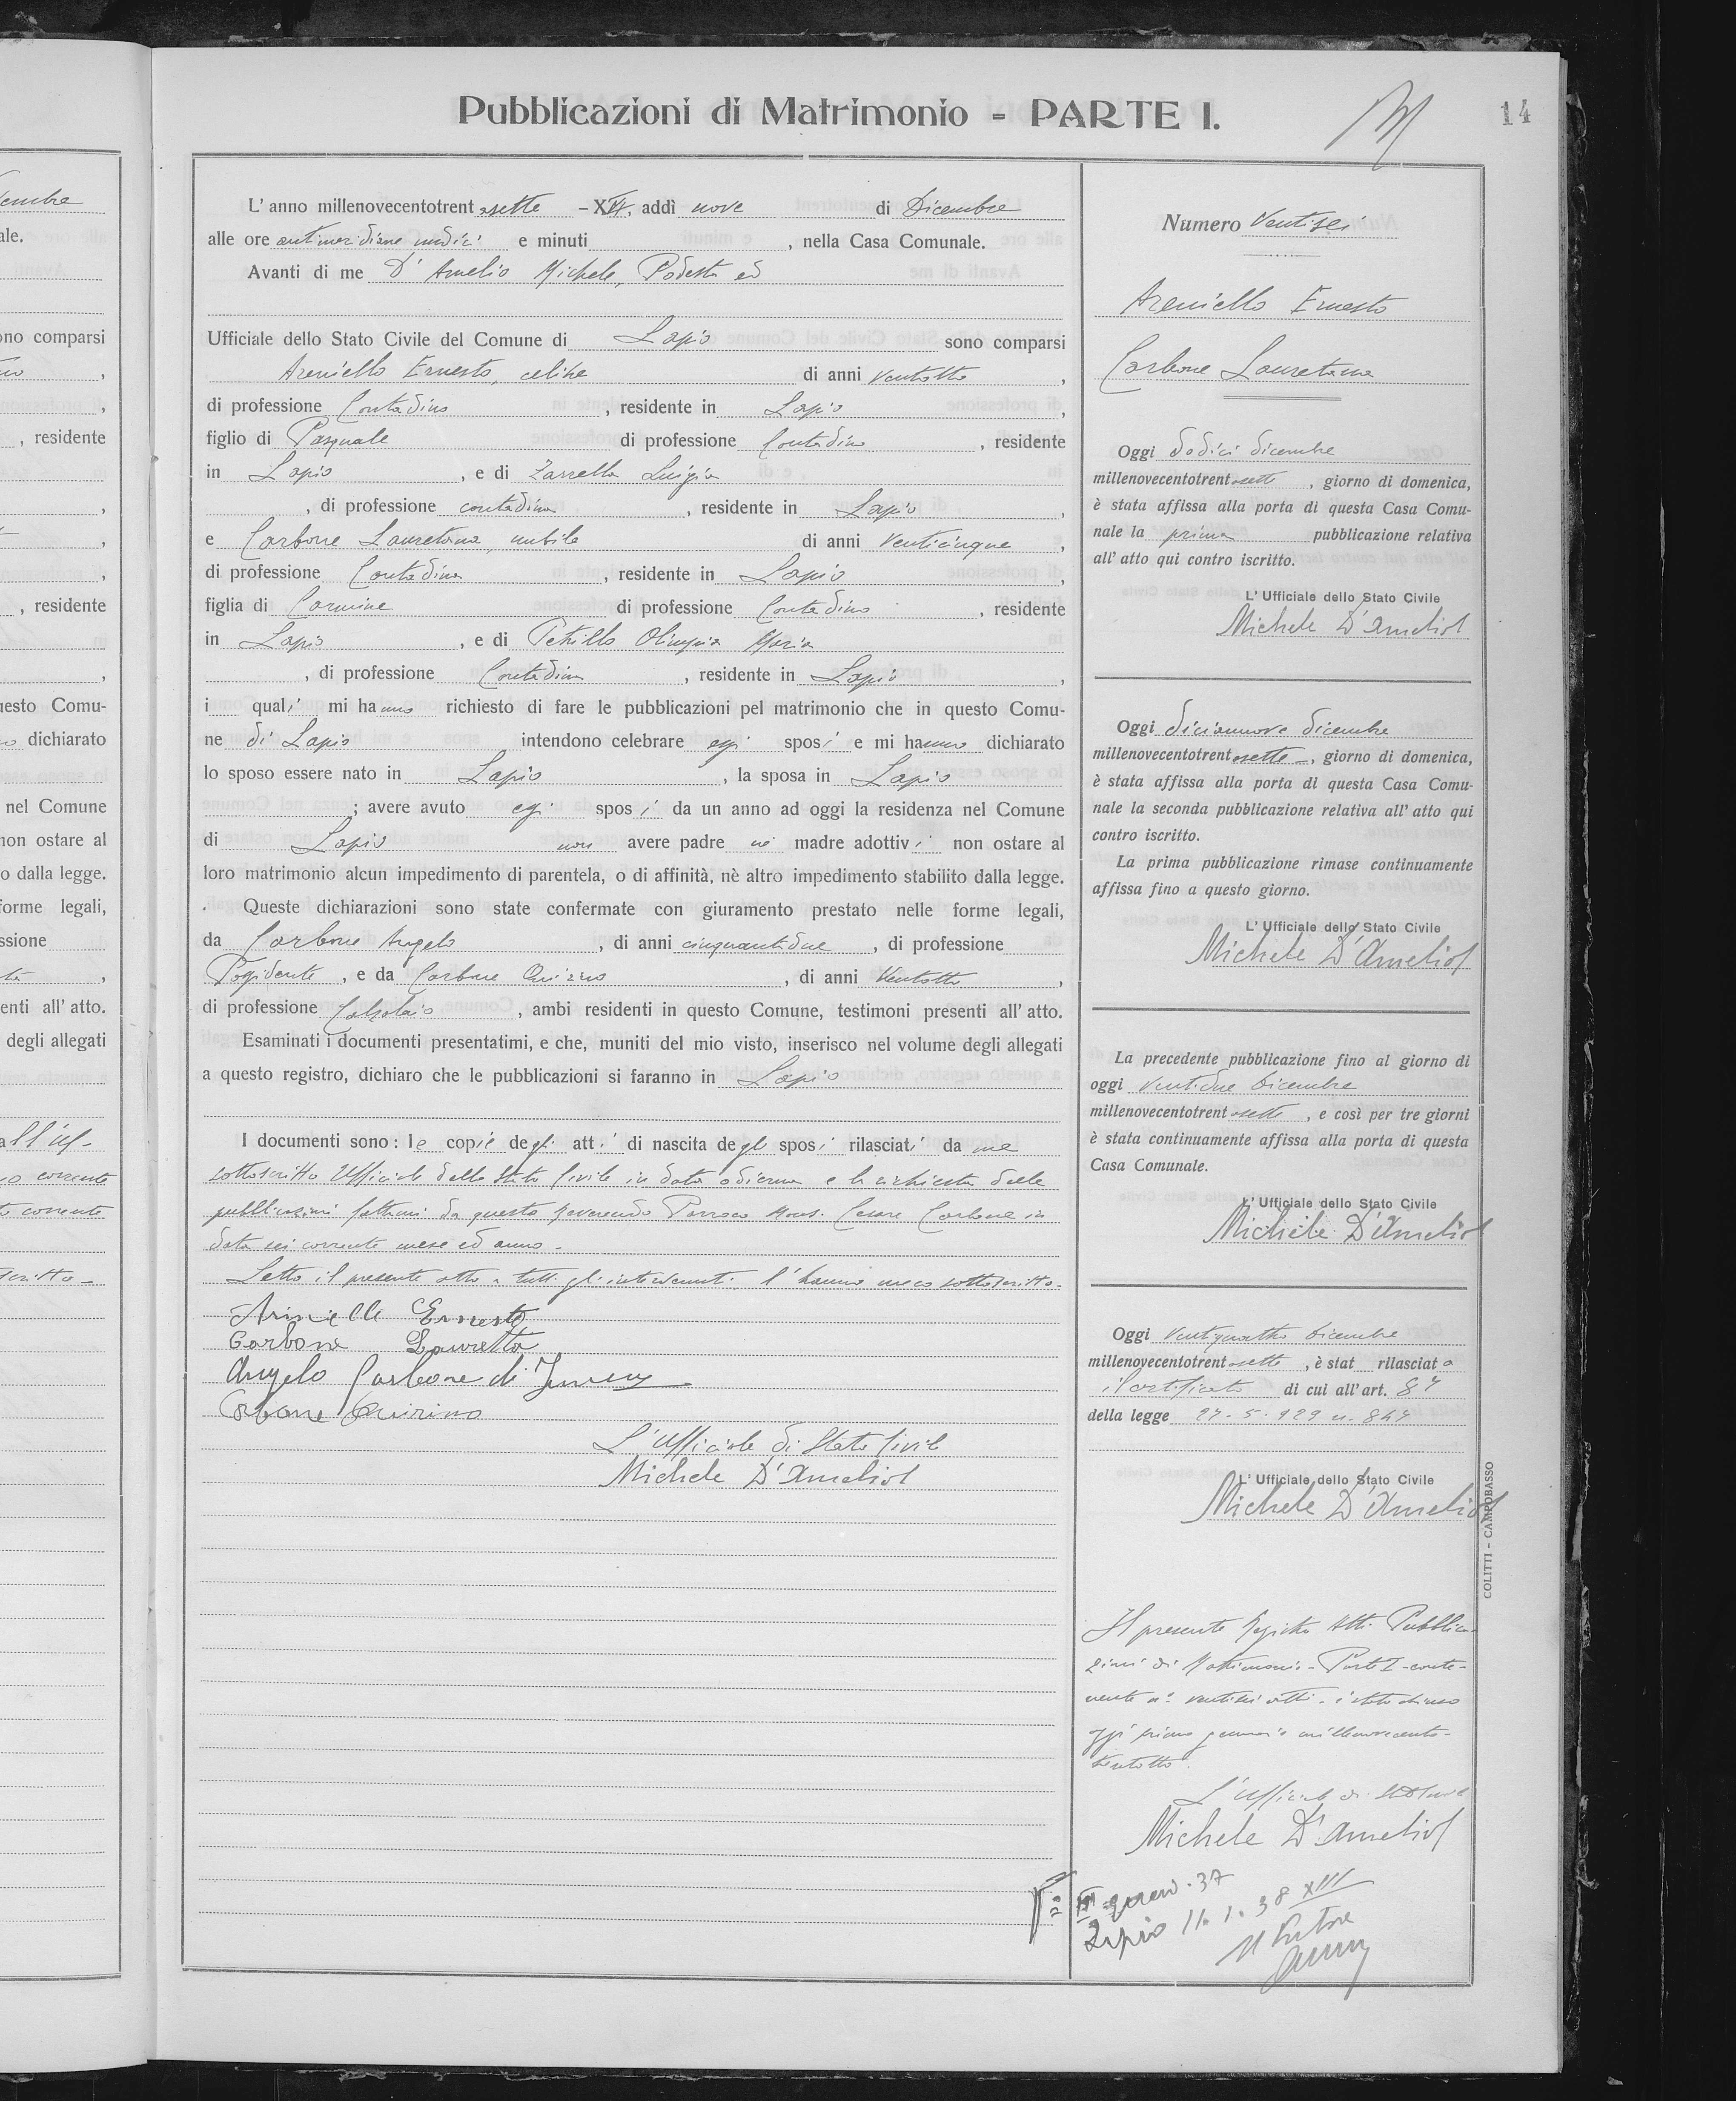 Pubblicazioni di Matrimonio - PARTE I.
14
L' anno millenovecentotrentasette - XVI, addì nove di Dicembre
alle ore antimeridiane undici e minuti , nella Casa Comunale.
Avanti di me D' Amelio Michele, Podestà ed
Ufficiale dello Stato Civile del Comune di Lapio sono comparsi
Areniello Ernesto, celibe di anni ventotto ,
di professione Contadino , residente in Lapio ,
figlio di Pasquale di professione Contadino , residente
in Lapio , e di Zarrella Luigia
, di professione contadina , residente in Lapio ,
e Carbone Lauretana, nubile di anni venticinque ,
di professione Contadina , residente in Lapio ,
figlia di Carmine di professione Contadino , residente
in Lapio , e di Petrillo Olimpia Maria
, di professione Contadina , residente in Lapio ,
i quali mi hanno richiesto di fare le pubblicazioni pel matrimonio che in questo Comu-
ne di Lapio intendono celebrare essi sposi e mi hanno dichiarato
lo sposo essere nato in Lapio , la sposa in Lapio
; avere avuto essi sposi da un anno ad oggi la residenza nel Comune
di Lapio non avere padre nè madre adottivi non ostare al
loro matrimonio alcun impedimento di parentela, o di affinità, nè altro impedimento stabilito dalla legge.
Queste dichiarazioni sono state confermate con giuramento prestato nelle forme legali,
da Carbone Angelo , di anni cinquantadue , di professione
Possidente , e da Carbone Quirino , di anni ventotto ,
di professione Calzolaio , ambi residenti in questo Comune, testimoni presenti all' atto.
Esaminati i documenti presentatimi, e che, muniti del mio visto, inserisco nel volume degli allegati
a questo registro, dichiaro che le pubblicazioni si faranno in Lapio
I documenti sono: le copie degli atti di nascita degli sposi rilasciati da me
sottoscritto Ufficiale dello Stato Civile in data odierna e la richiesta delle
pubblicazioni fattami da questo Reverendo Parroco Mons. Cesare Carbone in
data sei corrente mese ed anno -
Letto il presente atto a tutti gl'intervenuti l'hanno meco sottoscritto -
Arinielle Ernesto
Carbone Lauretta
Angelo Carbone di
Carbone Quirino
L'Ufficiale di Stato Civile
Michele D'Amelio
Numero Ventisei
Areniello Ernesto
Carbone Lauretana
Oggi dodici dicembre
millenovecentotrentasette , giorno di domenica,
è stata affissa alla porta di questa Casa Comu-
nale la prima pubblicazione relativa
all' atto qui contro iscritto.
L' Ufficiale dello Stato Civile
Michele D'Amelio
Oggi diciannove dicembre
millenovecentotrentasette -, giorno di domenica,
è stata affissa alla porta di questa Casa Comu-
nale la seconda pubblicazione relativa all' atto qui
contro iscritto.
La prima pubblicazione rimase continuamente
affissa fino a questo giorno.
L' Ufficiale dello Stato Civile
Michele D'Amelio
La precedente pubblicazione fino al giorno di
oggi ventidue dicembre
millenovecentotrentasette , e così per tre giorni
è stata continuamente affissa alla porta di questa
Casa Comunale.
L' Ufficiale dello Stato Civile
Michele D'Amelio
Oggi ventiquattro dicembre
millenovecentotrentasette , è stat rilasciato
il certificato di cui all'art. 87
della legge 27-5-929 n. 847
L' Ufficiale dello Stato Civile
Michele D'Amelio
COLITTI - CAMPOBASSO
Il presente Registro Atti Pubblica-
zioni di Matrimonio - Parte I - conte-
nente n° ventisei atti - è stato chiuso
oggi primo gennaio millenovecento-
trentotto.
L'Ufficiale di Stato Civile
Michele D'Amelio
Lapio 11. 1. 38 XVI
Il Pretore